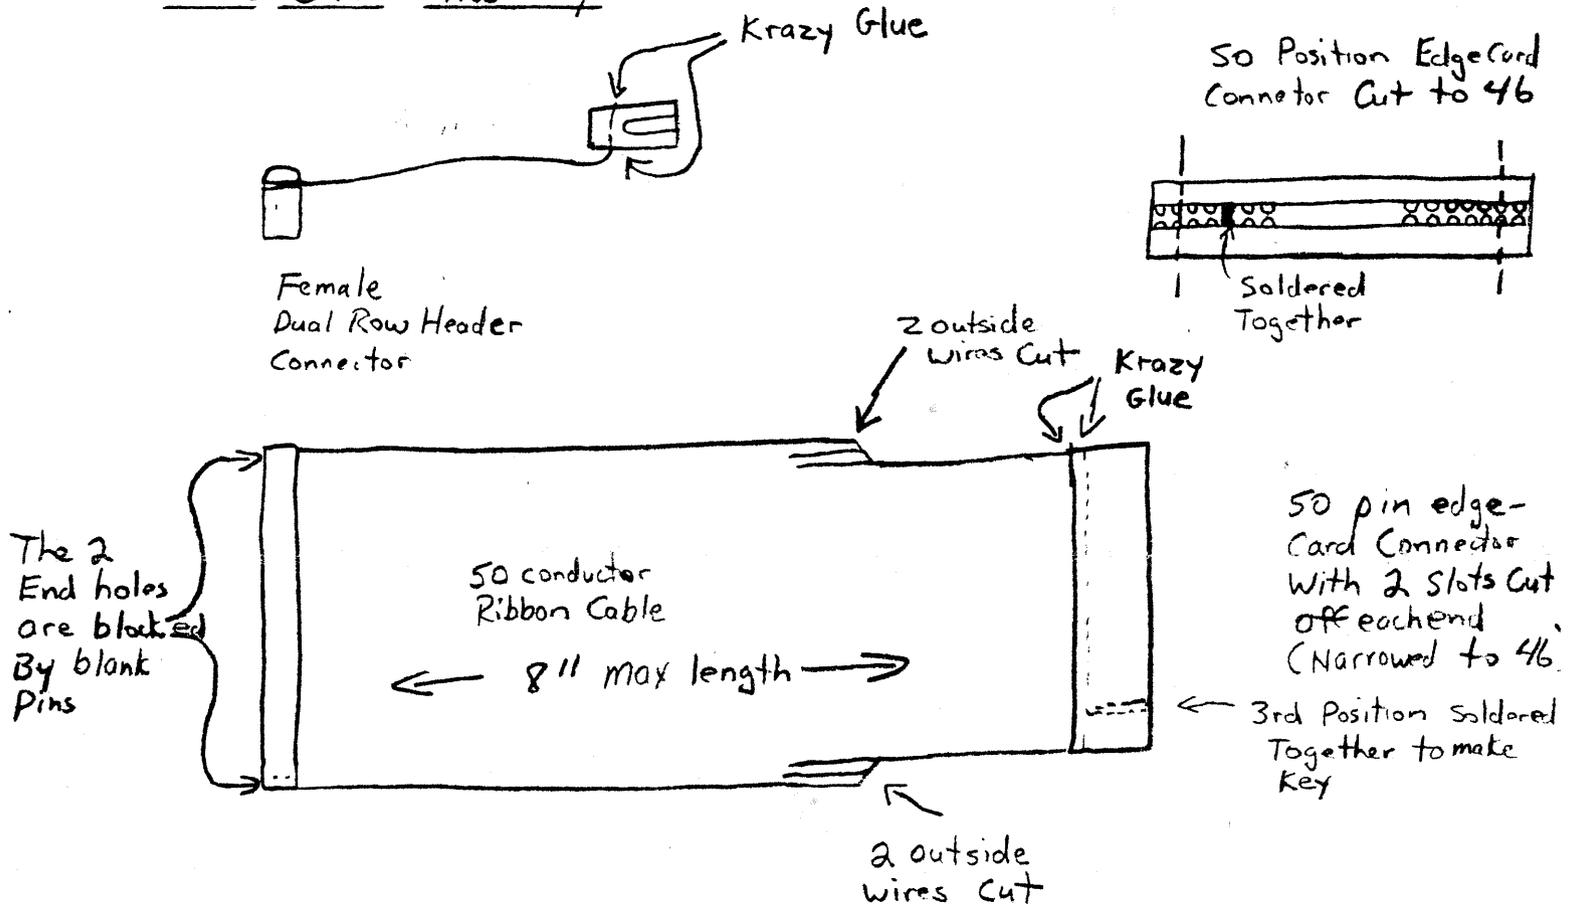 Krazy Glue
50 Position EdgeCard
Connetor Cut to 46
Female
Dual Row Header
Connector
Soldered
Together
2 outside
wires Cut
Krazy
Glue
The 2
End holes
are blocked
By blank
Pins
50 conductor
Ribbon Cable
8" max length
50 pin edge-
Card Connector
With 2 Slots Cut
off eachend
(Narrowed to 46.
3rd Position Soldered
Together to make
Key
2 outside
wires Cut